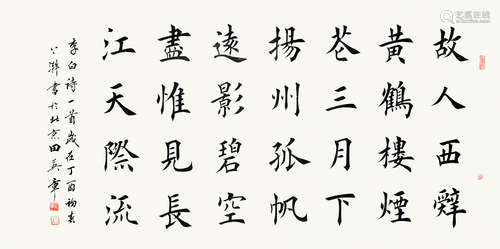 故人西辤
黃鶴樓煙
花三月下
揚州孤帆
遠影碧空
盡惟見長
江天際流
李白詩一首歲在丁酉初春
上澣書於北京田英章
艺狐在线